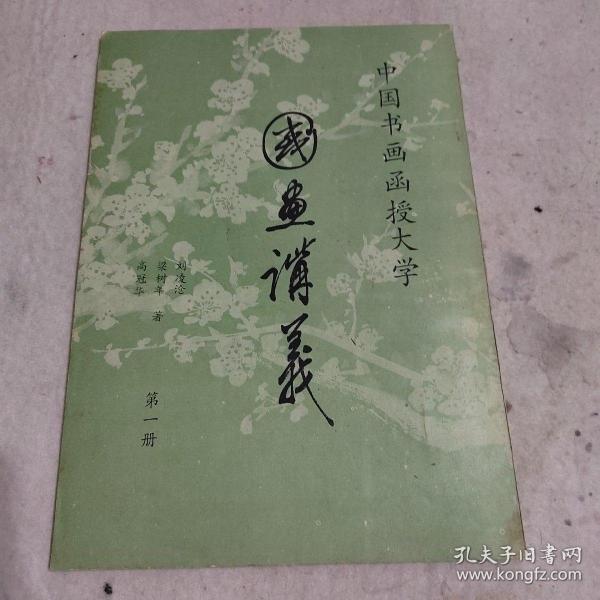 中国书画函授大学
國畫講義
刘凌沧
梁树年
高冠华
著
第一册
孔夫子旧書网
www.kongfz.com